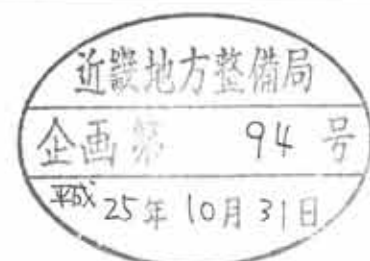 近畿地方整備局
企画第 94 号
平成 25年 10月 31日